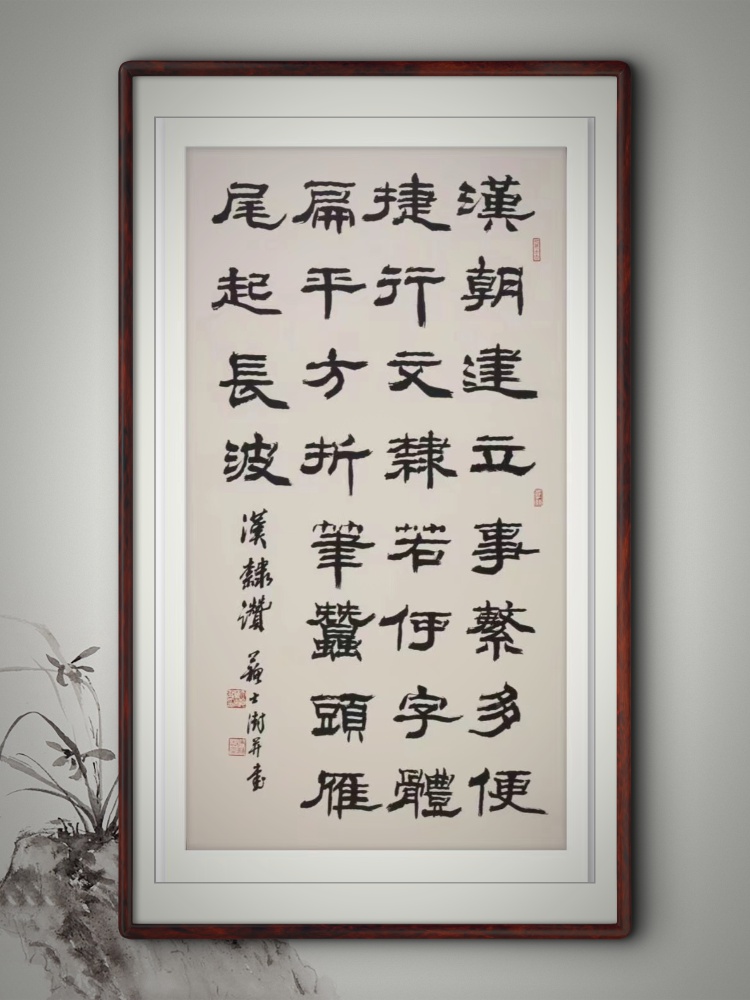 漢朝建立事繁多便
捷行文隸若何字體
扁平方折筆蠶頭雁
尾起長波
漢隸讚
蘇士澍并書